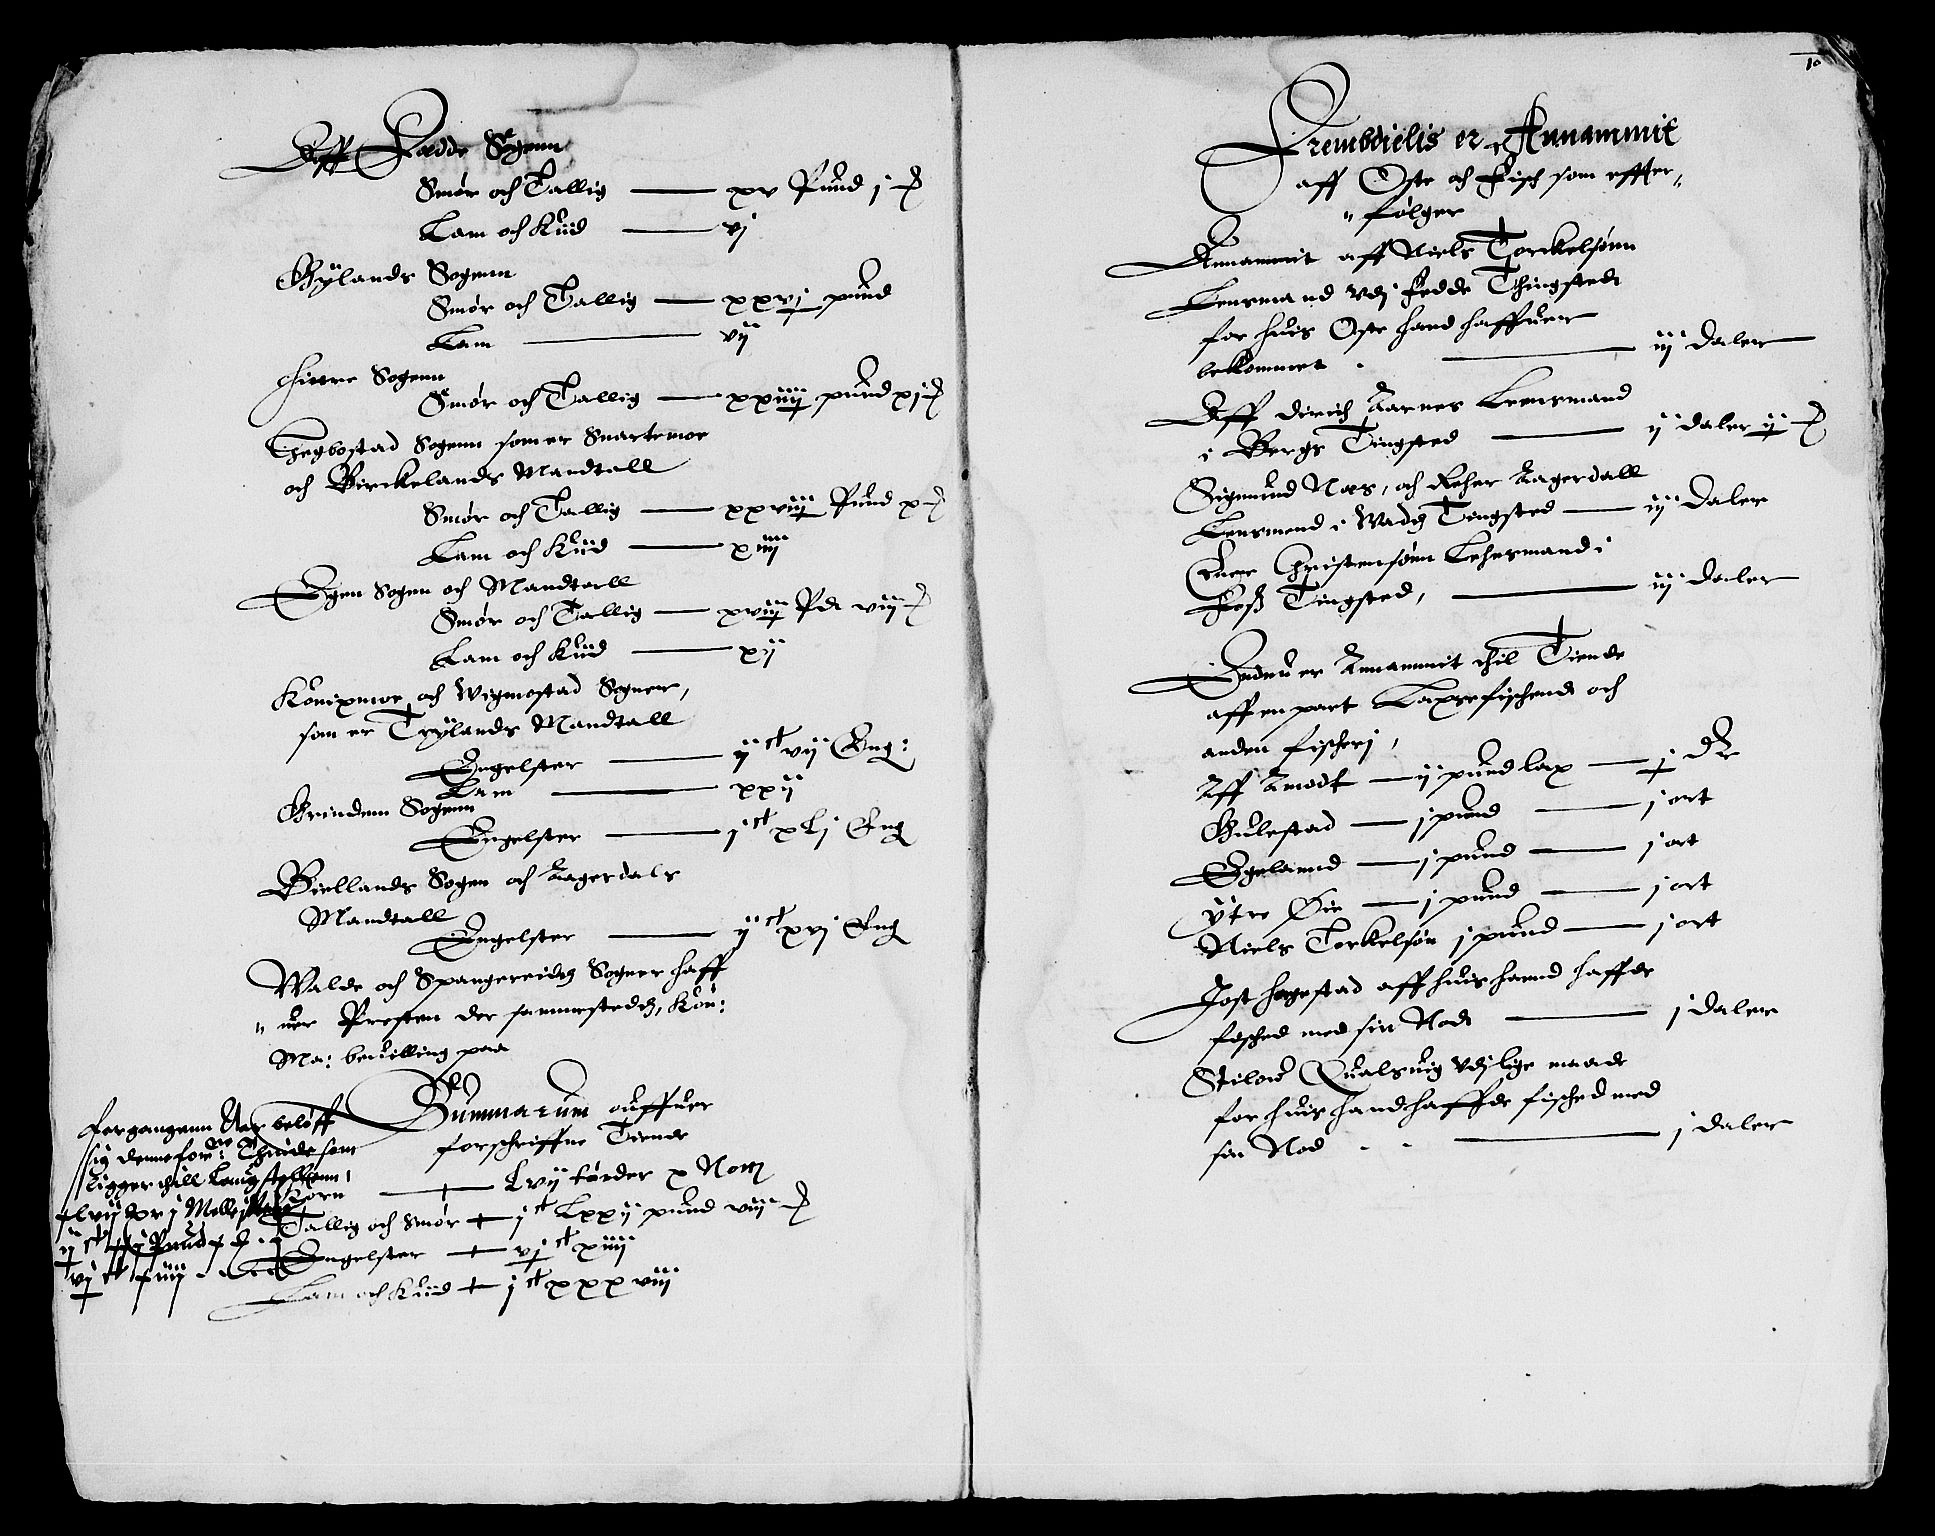 Aff Fædde Sogenn
Smør och Tallig — xv Pund j ℔
Lam och Kiid — vj
Gylands Sogenn
Smør och Tallig — xxvj pund
Lam — vij
Hittre Sogenn
Smør och Tallig — xxiiij pund xj ℔
Hegbostad Sogenn som er Snartemoe
och Birckelands Mandtall
Smør och Tallig — xxviij Pund x ℔
Lam och Kiid — xiiij
Egen Sogen och Mandtall
Smør och Tallig — xviij Pd viij ℔
Lam och Kiid — xij
Konixmoe och Wigmostad Sogner,
som er Trylands Mandtall
Engelster — ij ct vij Eng:
Lam — xxij
Grindem Sogenn
Engelster — j ct xLj Eng
Biellands Sogen och Aagerdals
Mandtall
Engelster — ij ct xvj Eng
Walde och Spangereidz Sogner haff
" uer Presten der sammestedz, Kon:
Ma: beuilling paa
Summarum ouffuer
forschriffne Tiende
Korn — Lvij tønder x
Tallig och Smør — j ct Lxxij pund viij ℔
Engelster — vj ct xiiij
Lam och Kiid — j ct xxxviij
forgangenn Aar beløff
sig denne for: Thiide som
ligger thill
10
Frembdielis er Annammit
aff Oste och Fisch som effter"
" følger
Annammit aff Niels Torckelsønn
Lensmand vdj Fedde Thingsted
for huis Oste hand haffuer
bekommet — iij daler
Aff Dirich Aarnes Lensmand
i Bergs Tingsted — ij daler ij
Sigmund Næs, och Reher Aagerdall
Lensmend i Wadz Tingsted — iij daler
Christensønn Lehnsmand i
Tingsted, — iij daler
Endnu er Annammit thil Tiende
aff en part Laxefischend och
anden fischerj,
Aff Amodt — ij pund lax — j dr
Gulestad — j pund — j ort
Egelannd — j pund — j ort
ytre Øie — j pund — j ort
Niels Torkelsøn j pund — j ort
Jost hogestad aff huis hannd haffde
fisched med sin Nod — j daler
Qualsuig vdj lige maade
for huis hand haffde fisched med
sin Nod — j daler